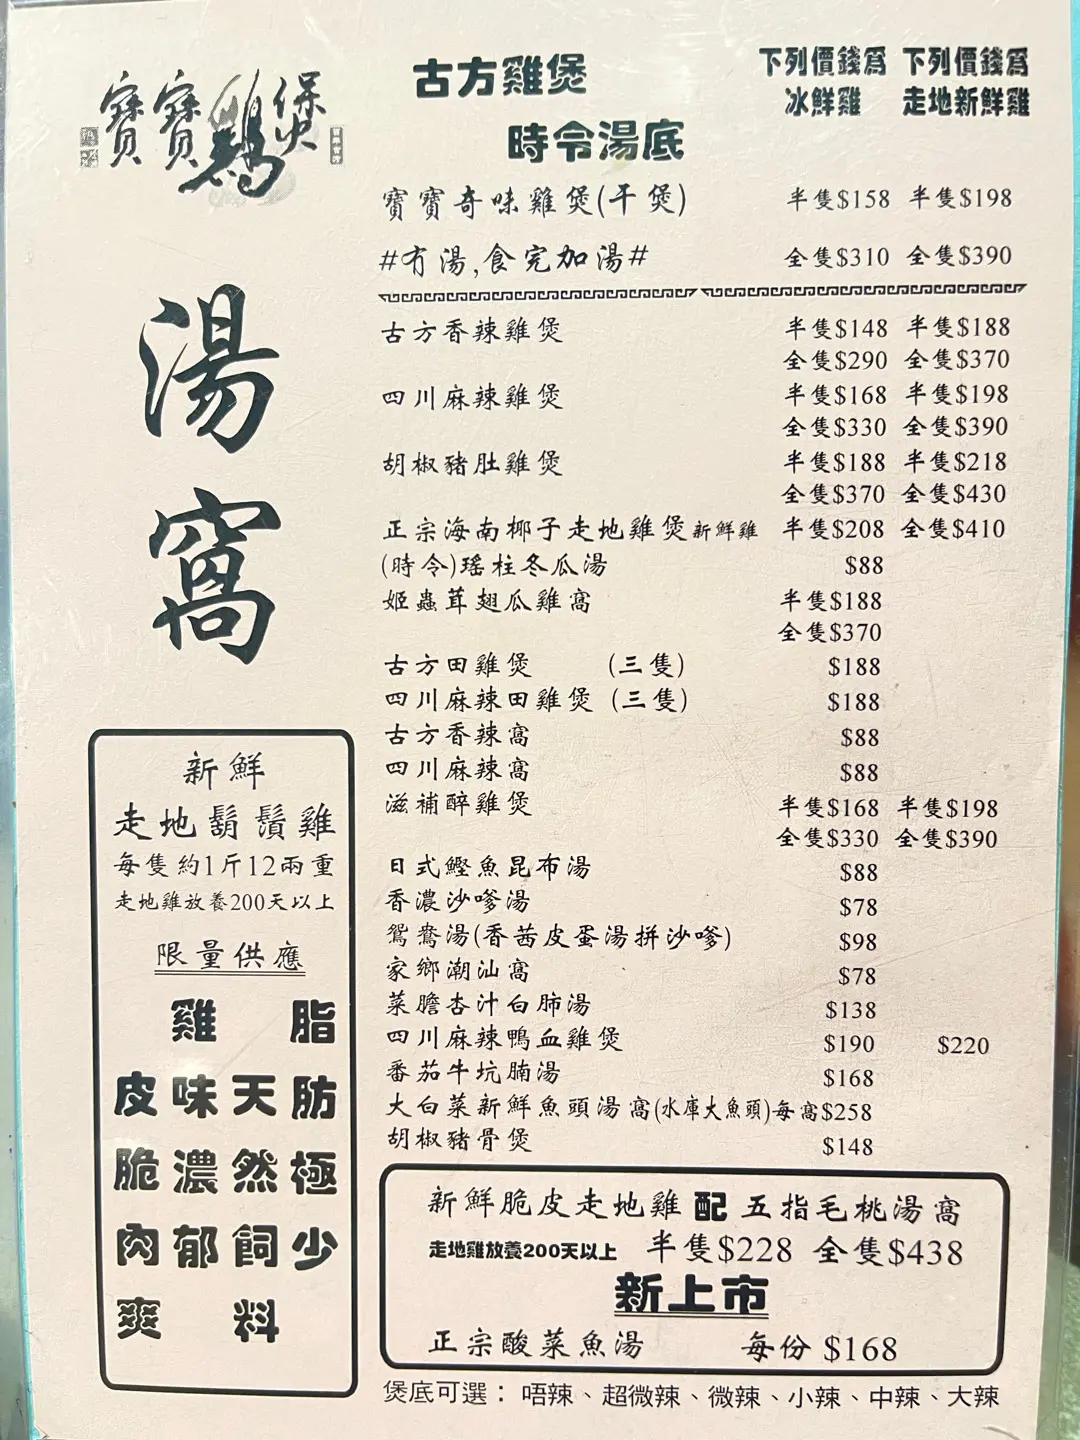 寶寶鷄煲
湯窩
古方雞煲
時令湯底
下列價錢為 下列價錢為
冰鮮雞 走地新鮮雞
寶寶奇味雞煲(干煲) 半隻$158 半隻$198
#有湯,食完加湯# 全隻$310 全隻$390
古方香辣雞煲 半隻$148 半隻$188
全隻$290 全隻$370
四川麻辣雞煲 半隻$168 半隻$198
全隻$330 全隻$390
胡椒豬肚雞煲 半隻$188 半隻$218
全隻$370 全隻$430
正宗海南椰子走地雞煲新鮮雞 半隻$208 全隻$410
(時令)瑤柱冬瓜湯 $88
姬蟲茸翅瓜雞窩 半隻$188
全隻$370
古方田雞煲 (三隻) $188
四川麻辣田雞煲 (三隻) $188
古方香辣窩 $88
四川麻辣窩 $88
滋補醉雞煲 半隻$168 半隻$198
全隻$330 全隻$390
日式鰹魚昆布湯 $88
香濃沙嗲湯 $78
鴛鴦湯(香茜皮蛋湯拼沙嗲) $98
家鄉潮汕窩 $78
菜膽杏汁白肺湯 $138
四川麻辣鴨血雞煲 $190 $220
番茄牛坑腩湯 $168
大白菜新鮮魚頭湯窩(水庫大魚頭)每窩$258
胡椒豬骨煲 $148
新鮮脆皮走地雞 配 五指毛桃湯窩
走地雞放養200天以上 半隻$228 全隻$438
新上市
正宗酸菜魚湯 每份 $168
煲底可選： 唔辣、超微辣、微辣、小辣、中辣、大辣
新鮮
走地鬍鬚雞
每隻約1斤12兩重
走地雞放養200天以上
限量供應
脂肪極少
天然飼料
雞味濃郁
皮脆肉爽